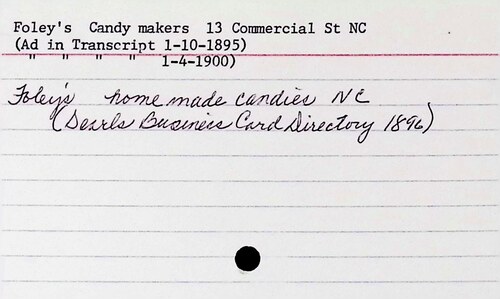 Foley's Candy makers 13 Commercial St NC
(Ad in Transcript 1-10-1895)
" " " " 1-4-1900)
Foley's home made candies NC
(Searls Business Card Directory 1896)